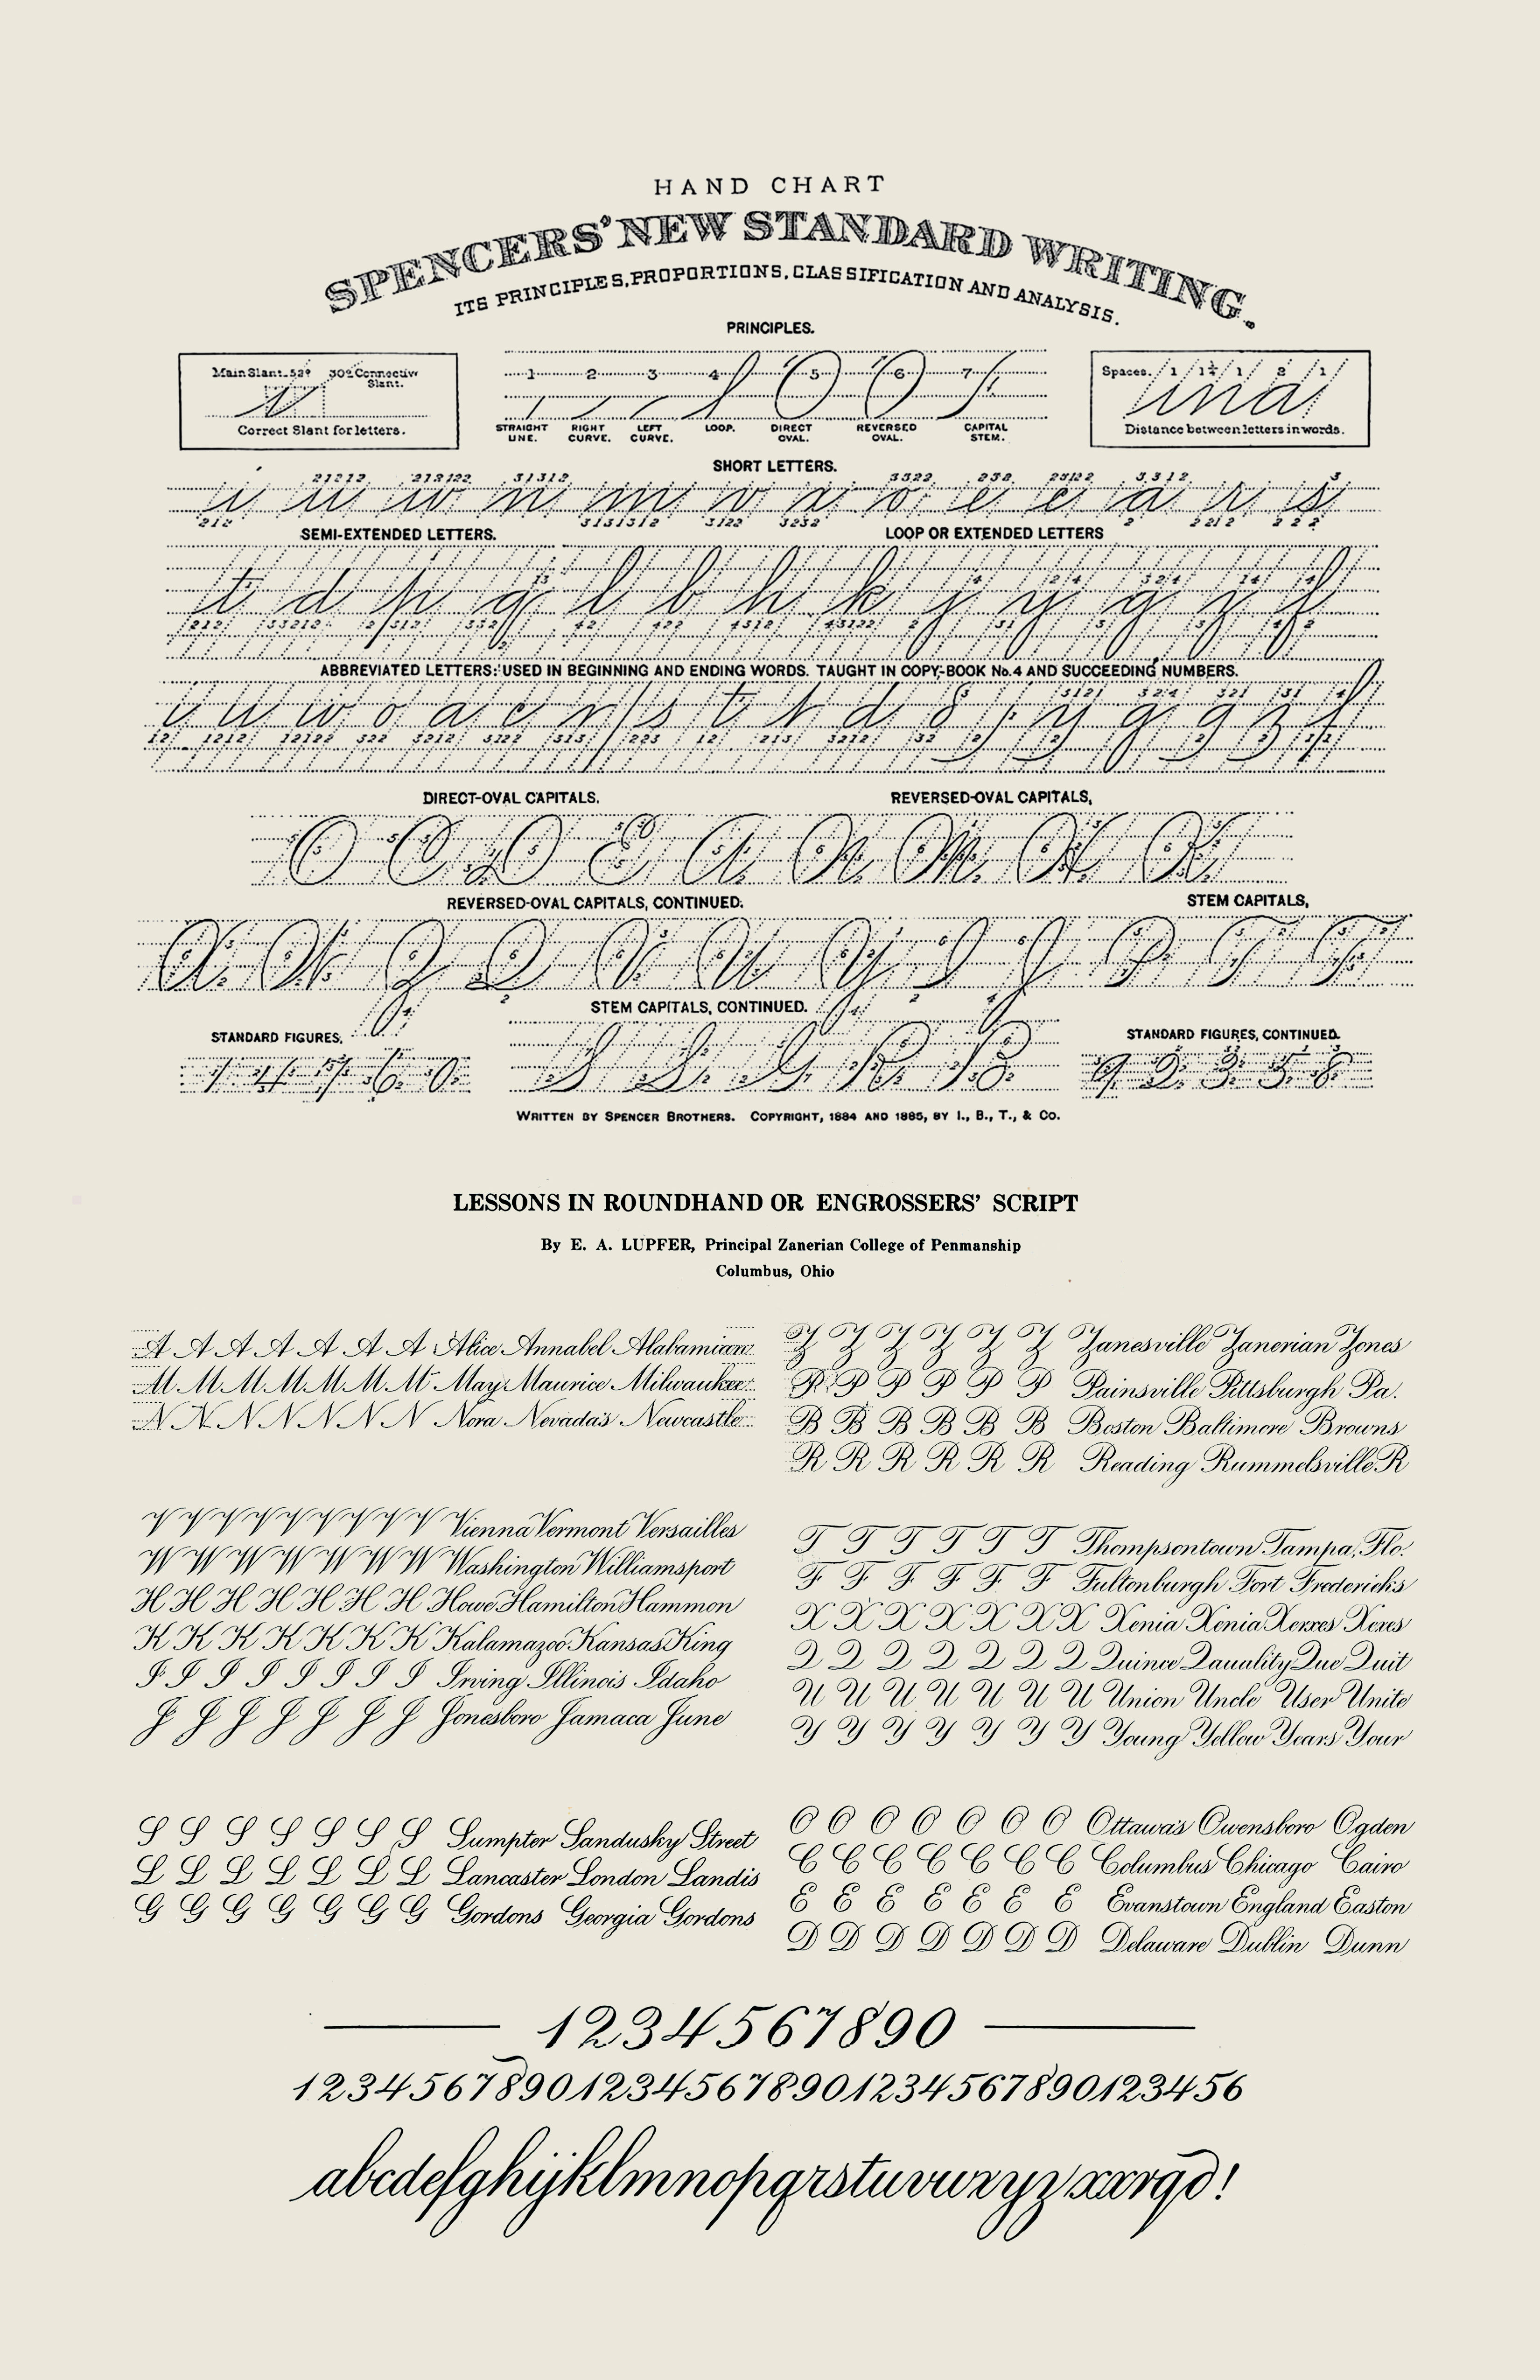 HAND CHART
SPENCERS' NEW STANDARD WRITING.
ITS PRINCIPLES, PROPORTIONS, CLASSIFICATION AND ANALYSIS.
PRINCIPLES.
Main Slant 52° 30° Connective Slant.
Correct Slant for letters.
1 2 3 4 5 6 7
STRAIGHT LINE. RIGHT CURVE. LEFT CURVE. LOOP. DIRECT OVAL. REVERSED OVAL. CAPITAL STEM.
Spaces. 1 1¼ 1 2 1
ina
Distance between letters in words.
SHORT LETTERS.
i u w n m v x o c e a r s
SEMI-EXTENDED LETTERS. LOOP OR EXTENDED LETTERS
t d p q l b h k j y g z f
ABBREVIATED LETTERS: USED IN BEGINNING AND ENDING WORDS. TAUGHT IN COPY-BOOK No. 4 AND SUCCEEDING NUMBERS.
DIRECT-OVAL CAPITALS. REVERSED-OVAL CAPITALS,
O C D E A N M H K
REVERSED-OVAL CAPITALS, CONTINUED. STEM CAPITALS,
X W Z Q V U Y I J P T F
STEM CAPITALS, CONTINUED.
S L G R B
STANDARD FIGURES.
1 4 7 6 0
STANDARD FIGURES, CONTINUED.
9 2 3 5 8
WRITTEN BY SPENCER BROTHERS. COPYRIGHT, 1884 AND 1885, BY I., B., T., & CO.
LESSONS IN ROUNDHAND OR ENGROSSERS' SCRIPT
By E. A. LUPFER, Principal Zanerian College of Penmanship
Columbus, Ohio
A A A A A A A Alice Annabel Alabamian
M M M M M M M May Maurice Milwaukee
N N N N N N N Nora Nevada's Newcastle
Z Z Z Z Z Z Zanesville Zanerian Zones
P P P P P P Painsville Pittsburgh Pa.
B B B B B B Boston Baltimore Browns
R R R R R R Reading Rummelsville R
V V V V V V V V V Vienna Vermont Versailles
W W W W W W W Washington Williamsport
H H H H H H H Howe Hamilton Hammon
K K K K K K K Kalamazoo Kansas King
I I I I I I I Irving Illinois Idaho
J J J J J J J Jonesboro Jamaca June
T T T T T T Thompsontown Tampa, Flo.
F F F F F F Fultonburgh Fort Fredericks
X X X X X X X Xenia Xenia Xerxes Xexes
Q Q Q Q Q Q Q Quince Qauality Que Quit
U U U U U U U Union Uncle User Unite
Y Y Y Y Y Y Y Young Yellow Years Your
S S S S S S S Sumpter Sandusky Street
L L L L L L L Lancaster London Landis
G G G G G G G Gordons Georgia Gordons
O O O O O O O Ottawa's Owensboro Ogden
C C C C C C C Columbus Chicago Cairo
E E E E E E E Evanstown England Easton
D D D D D D D Delaware Dublin Dunn
1234567890
123456789012345678901234567890123456
abcdefghijklmnopqrstuvwxyz xxrqd!